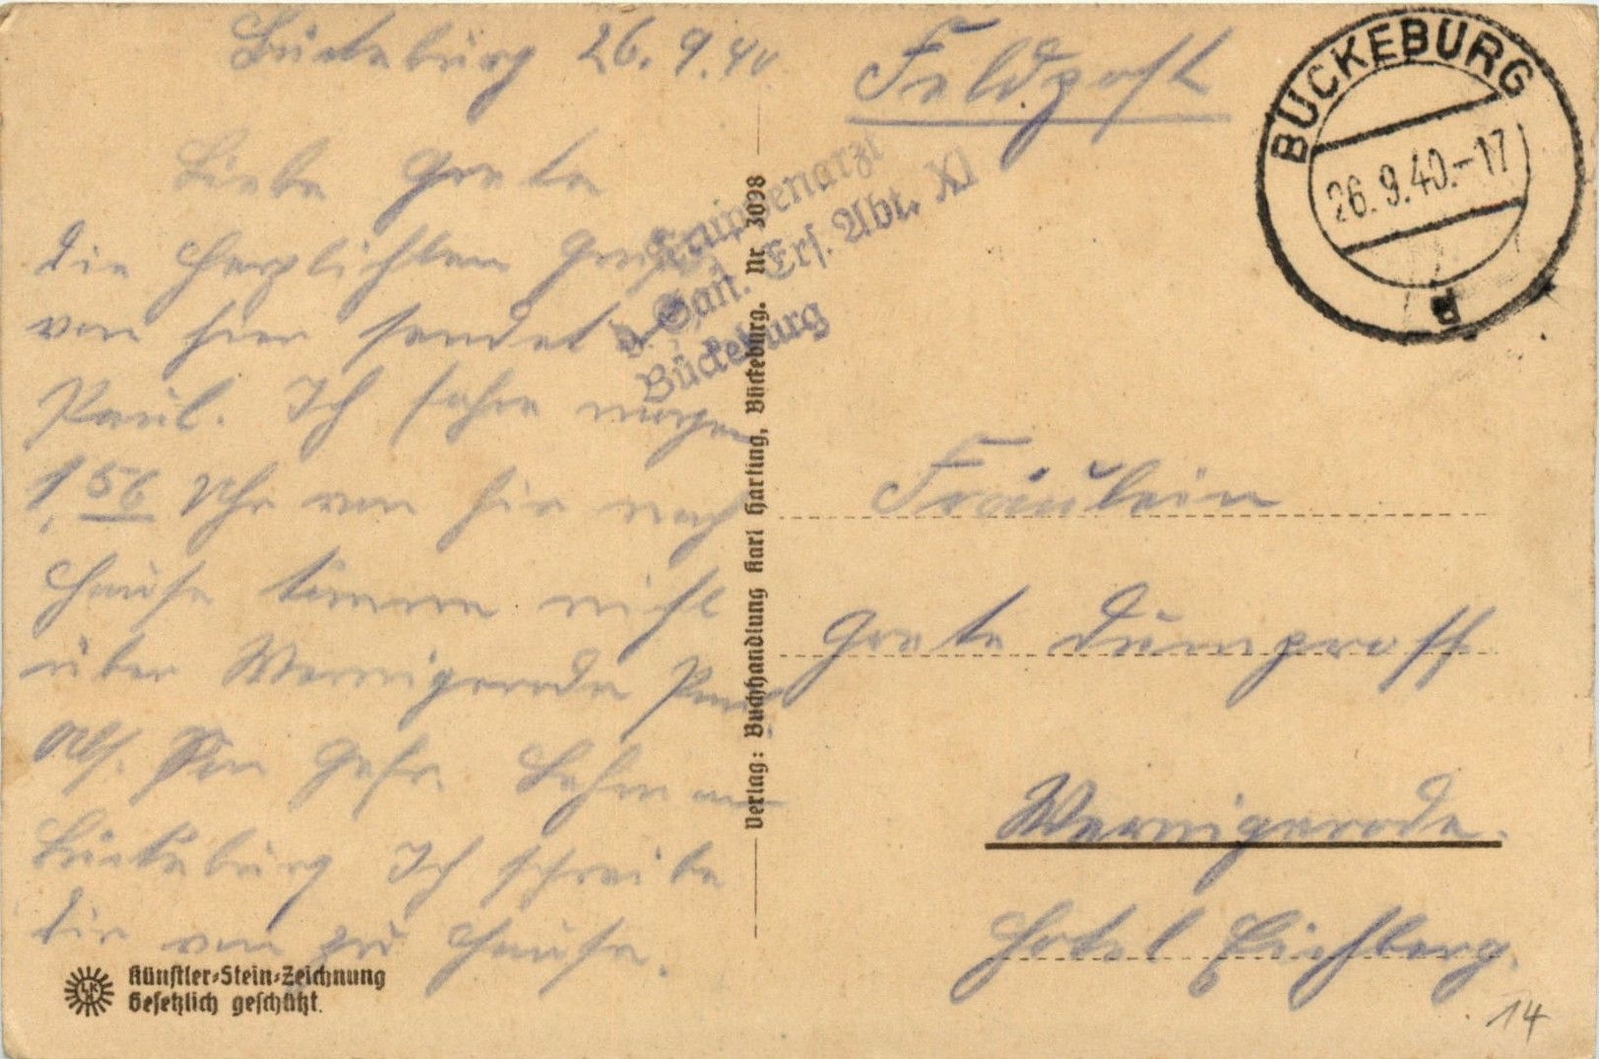 Bückeburg 26.9.40
Liebe Grete
die herzlichsten Grüße
von hier sendet
Paul. Ich fahre morgen
1,56 Uhr von hir nach
Hause komme nicht
über Wernigerode
Abs. Gefr.
Bückeburg Ich schreibe
dir von zu Hause.
Künstler-Stein-Zeichnung
Gesetzlich geschützt.
Verlag: Buchhandlung Karl Harting, Bückeburg. Nr 3098
Truppenarzt
d. San. Ers. Abt. XI
Bückeburg
Feldpost
BÜCKEBURG
26.9.40.-17
Fräulein
Grete
Wernigerode.
Hotel Eichberg.
14